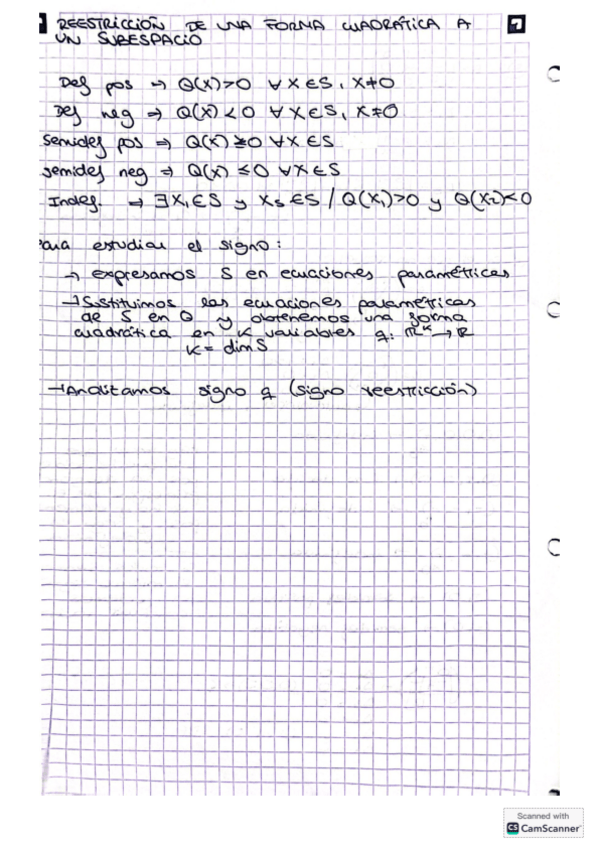 REESTRICCIÓN DE UNA FORMA CUADRÁTICA A
UN SUBESPACIO
Def pos → Q(x)>0 ∀ x∈S, x≠0
Def neg ⇒ Q(x)<0 ∀ x∈S, x≠0
Semidef pos ⇒ Q(x)≥0 ∀x∈S
semidef neg ⇒ Q(x)≤0 ∀x∈S
Indef. → ∃x₁∈S y x₅∈S / Q(x₁)>0 y Q(x₂)<0
Para estudiar el signo:
→ expresamos S en ecuaciones paramétricas
→ Sustituimos las ecuaciones paramétricas
de S en Q y obtenemos una forma
cuadrática en K variables q: ℝᴷ → ℝ
K = dim S
→ Analizamos signo q (signo reestricción)
Scanned with
CS CamScanner